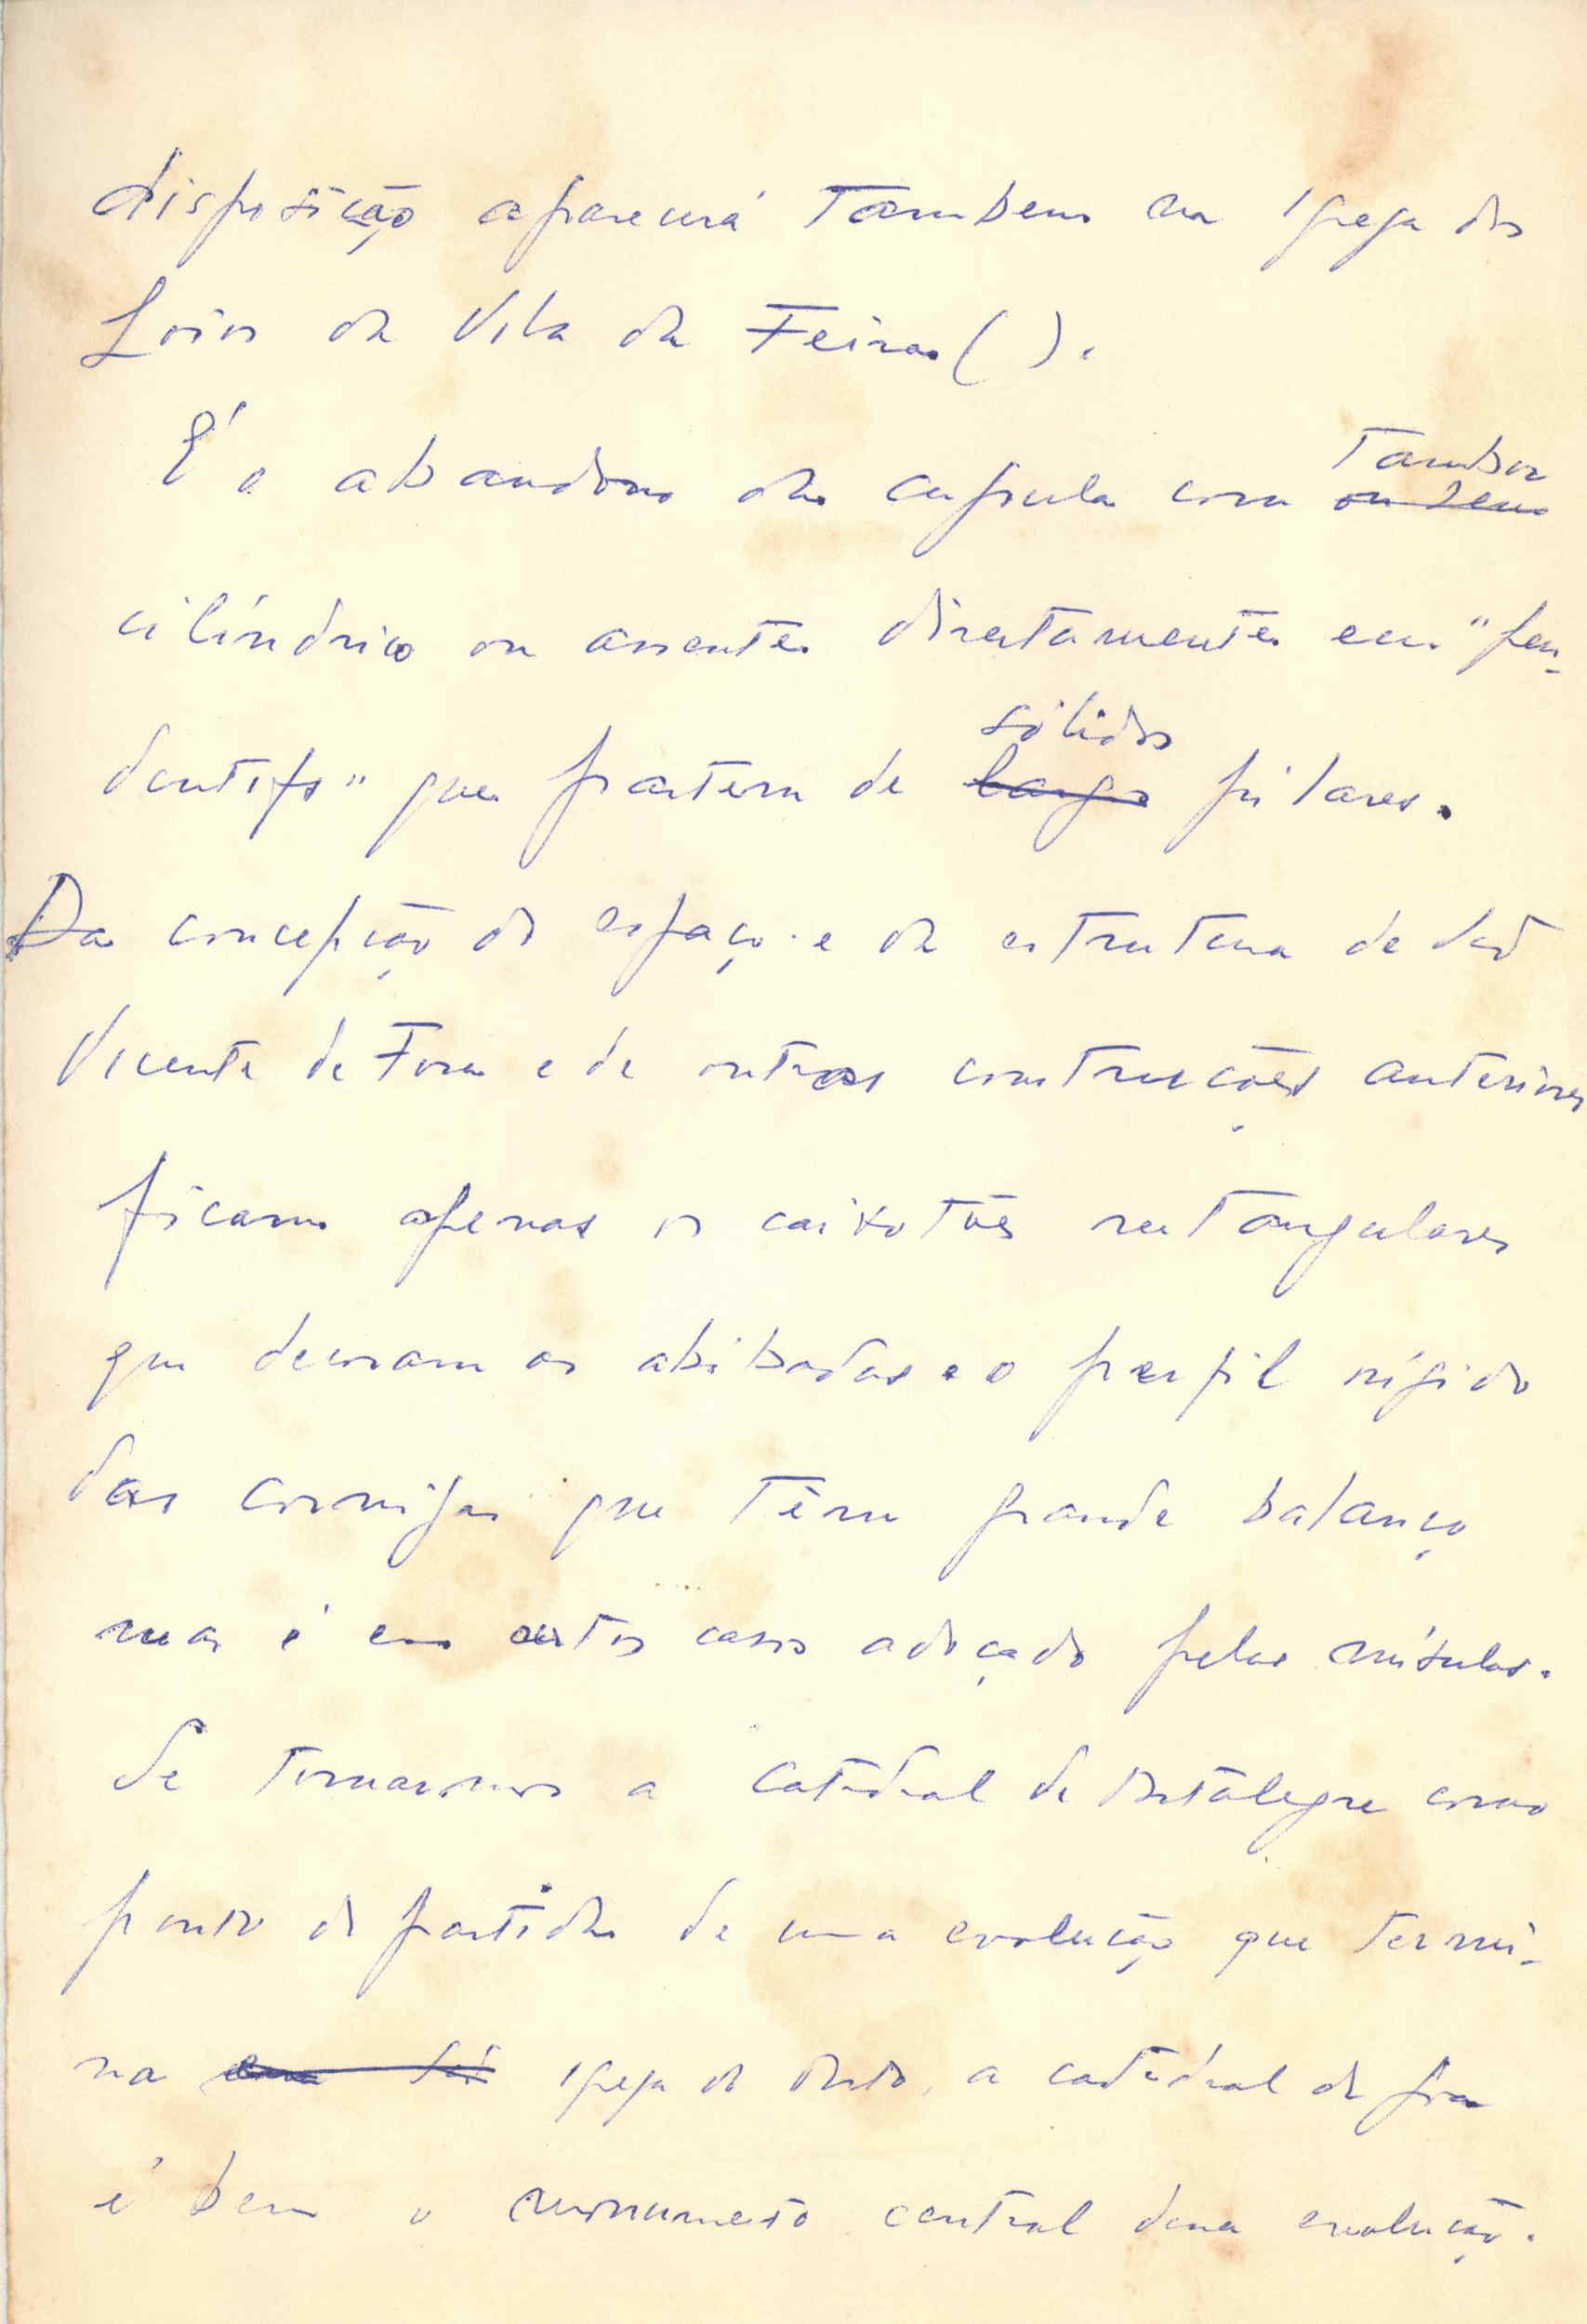 disposição aparecerá Tambem na Igreja dos
Loios da Vila da Feira ( ).
É o abandono da cupula com ou sem Tambor
cilíndrico ou assente directamente em "pen-
dentifs" que partem de largos sólidos pilares.
Da concepção do espaço e da estrutura de São
Vicente de Fora e de outras construções anteriores
ficam apenas os caixotões rectangulares
que decoram as abóbadas e o perfil rígido
das cornijas que Têm grande balanço
mas é em certos casos adoçado pelas mísulas.
Se Tomarmos a catedral de Portalegre como
ponto de partida de uma evolução que Termi-
na Igreja do Porto, a catedral de
é bem o monumento central dessa evolução.